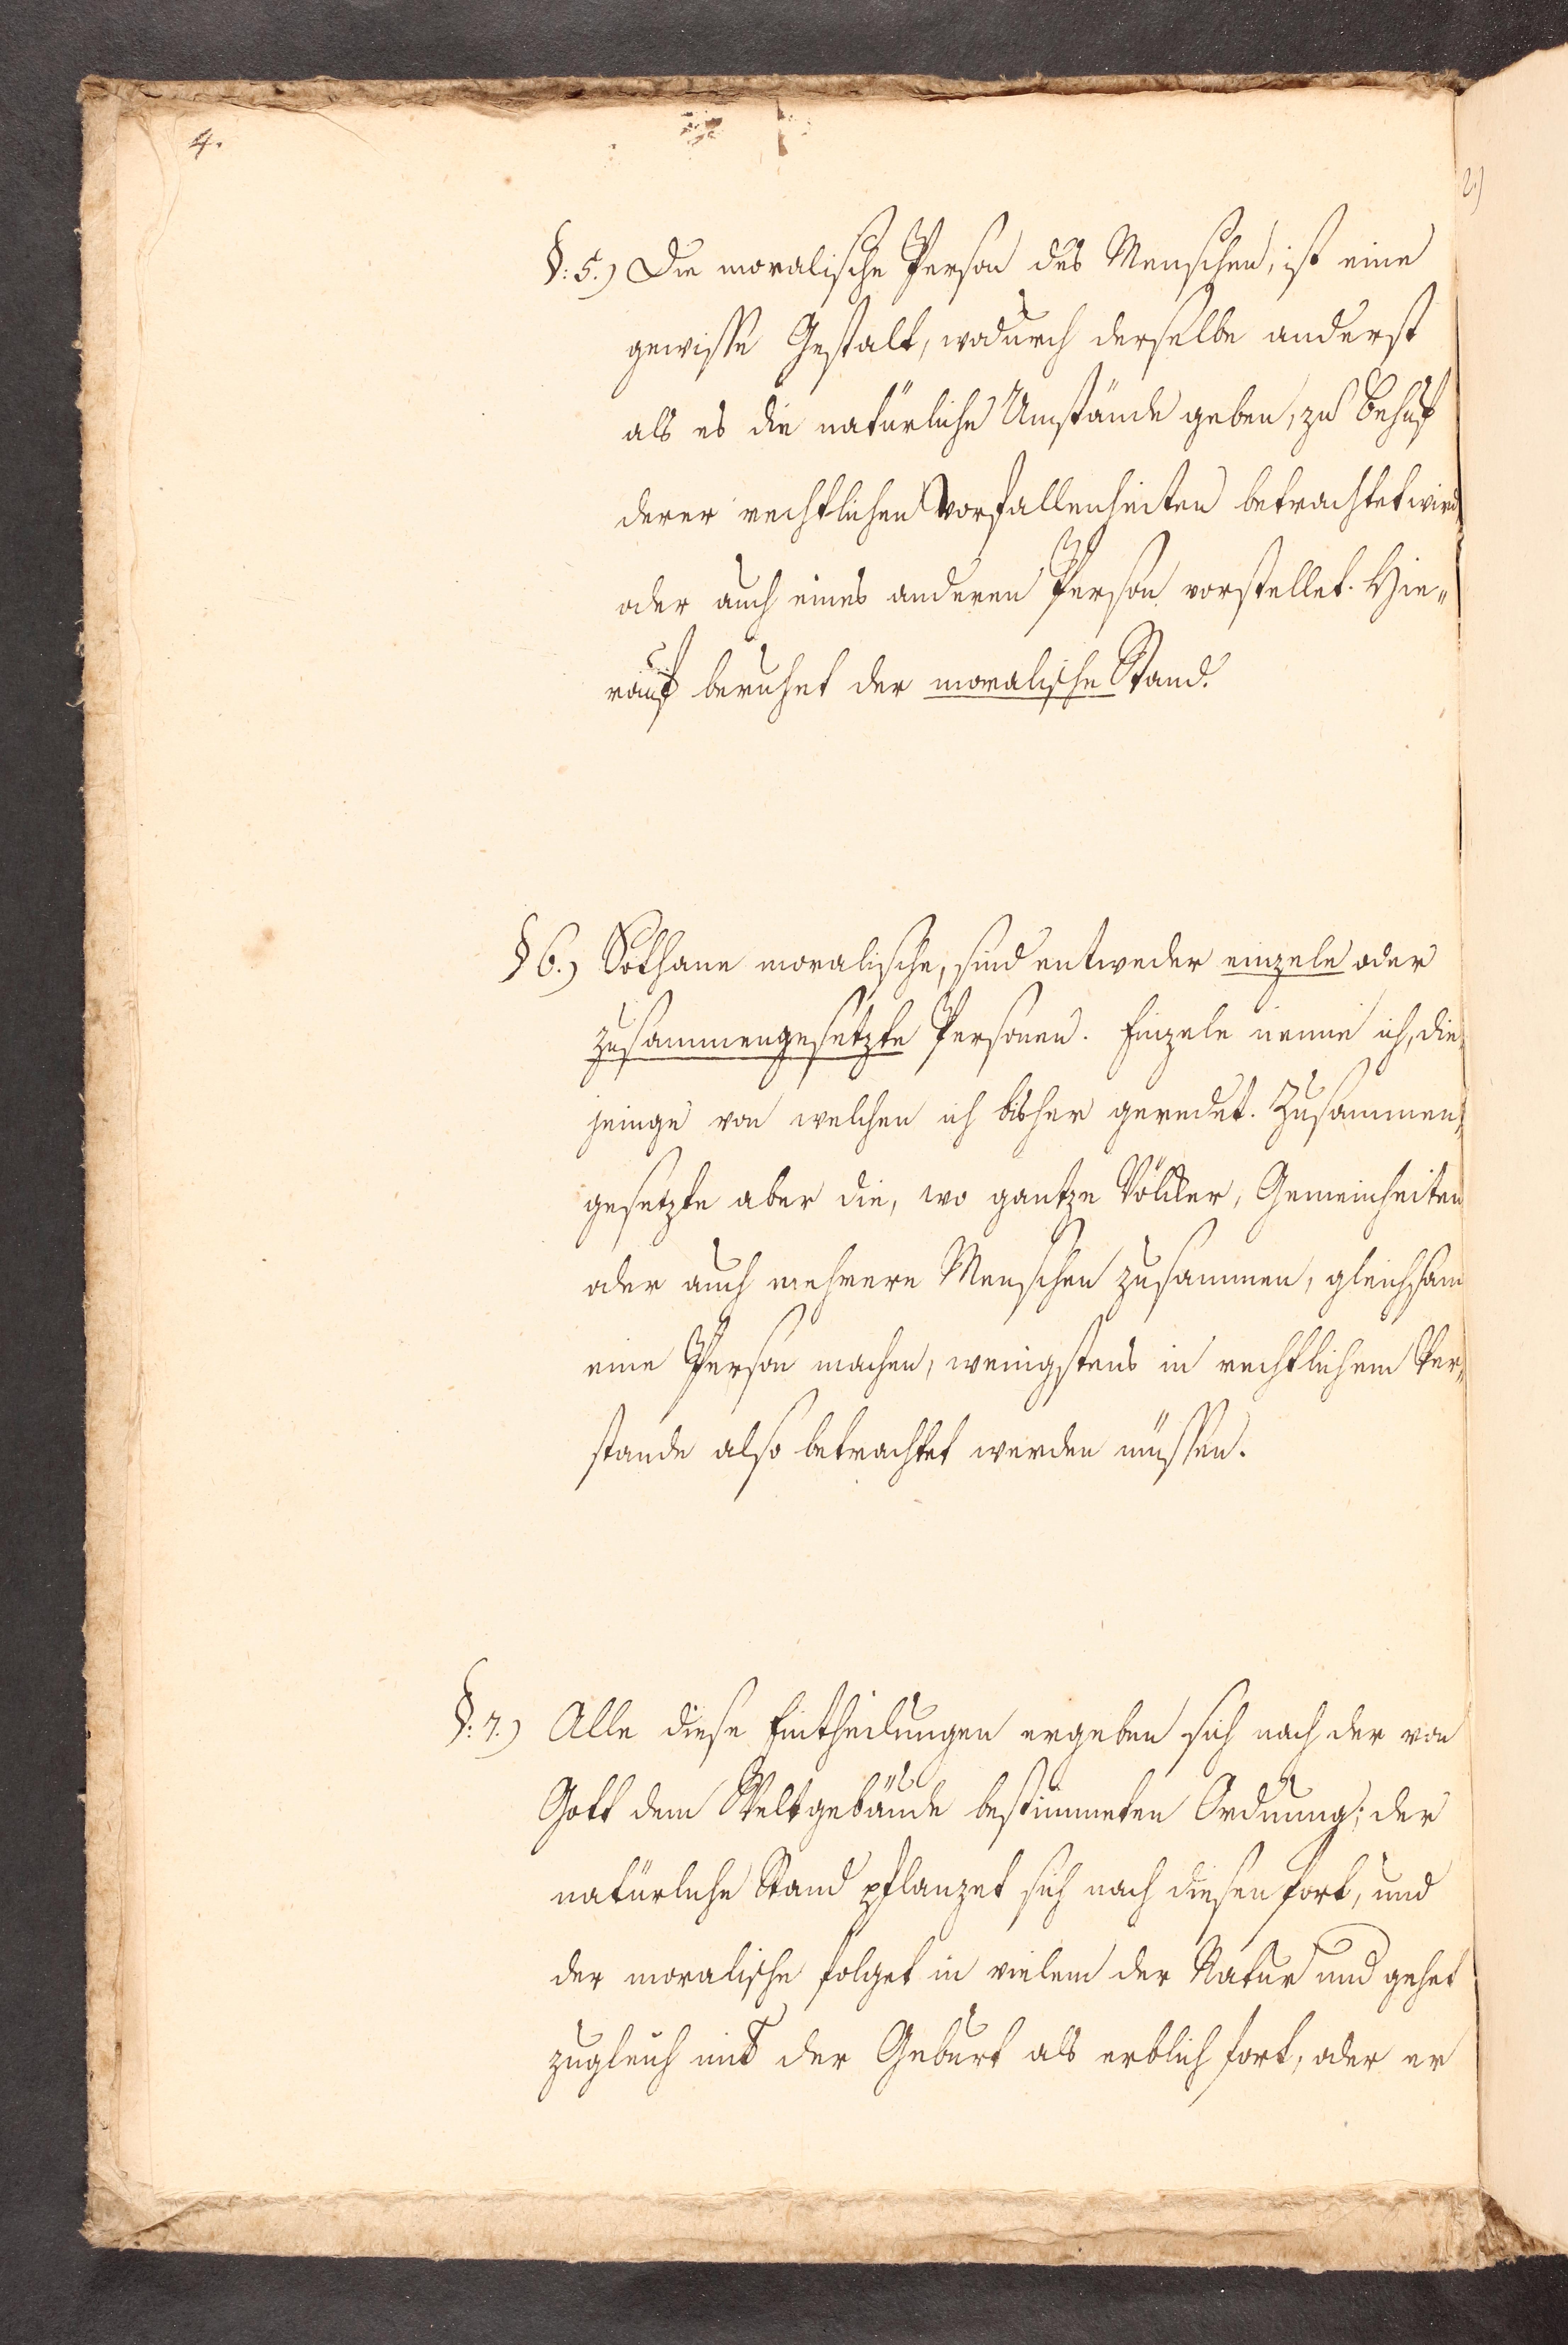 4.
§: 5.) Die moralische Person des Menschen, ist eine
gewisse Gestalt, wodurch derselbe anderst
als es die natürliche Umstände geben, zu Behuf
derer rechtlichen Vorfallenheiten betrachtet wird
oder auch eines anderen Person vorstellet. Hie„
rauf beruhet der moralische Stand.
§ 6.) Sothane moralische, sind entweder einzele oder
zusammengesetzte Personen. Einzele nenne ich, die„
jenige von welchen ich bisher geredet. Zusammen„
gesetzte aber die, wo gantze Völcker, Gemeinheiten
oder auch mehrere Menschen zusammen, gleichsam
eine Person machen, wenigstens in rechtlichem Ver„
stande also betrachtet werden müssen.
§: 7.) Alle diese Eintheilungen ergeben sich nach der von
Gott dem Weltgebäude bestimmeten Ordnung; der
natürliche Stand pflanzet sich nach diesen fort, und
der moralische folget in vielem der Natur und gehet
zugleich mit der Geburt als erblich fort, oder er